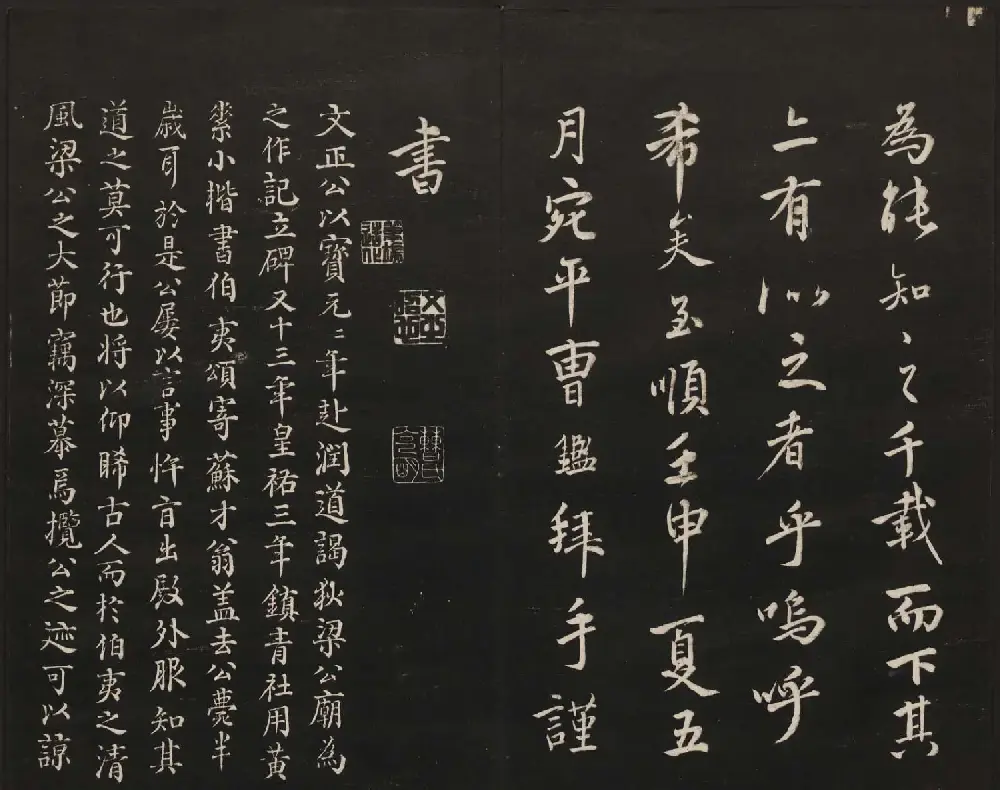 為能知〻之千載而下其
亦有似之者乎嗚呼
希矣至順壬申夏五
月宛平曹鑑拜手謹
書
文正公以寶元二年赴潤道謁狄梁公廟為
之作記立碑又十三年皇祐三年鎮青社用黃
素小楷書伯夷頌寄蘇才翁盖去公薨半
歲耳於是公屡以言事忤旨出殿外服知其
道之莫可行也将以仰睎古人而於伯夷之清
風梁公之大節竊深慕焉攬公之迹可以諒